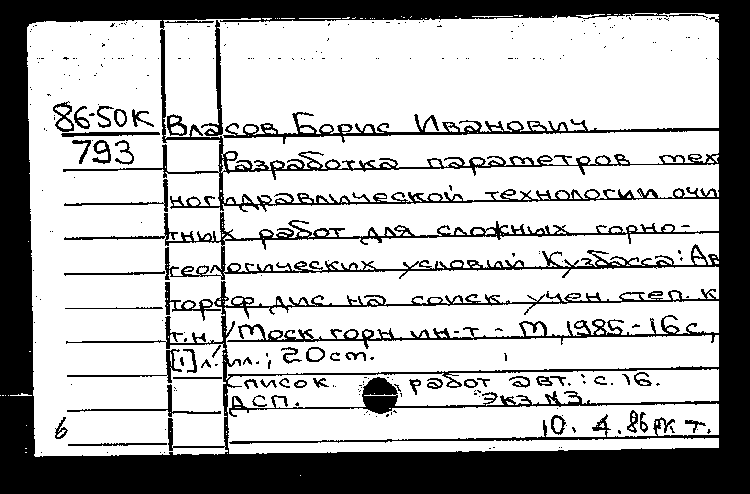 86-50К Власов, Борис Иванович.
793 Разработка параметров мех
ногидравлической технологии очи
тных работ для сложных горно-
геологических условий Кузбасса: Ав
тореф. дис. на соиск. учен. степ. к
т.н. /Моск. горн. ин-т. - М., 1985. - 16 с.,
[1] л. ил.; 20 cm.
Список работ авт.: с. 16.
ДСП. Экз. №3.
6 10. 4. 86 РК Т.